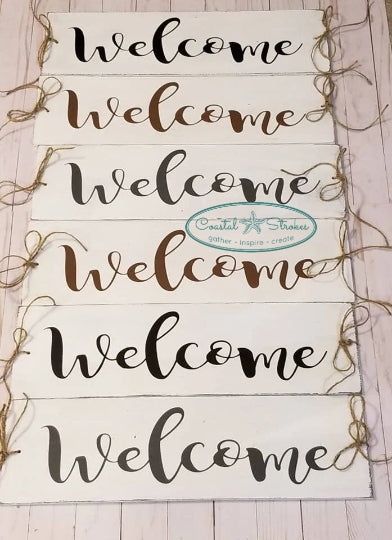 Welcome
Welcome
Welcome
Coastal Strokes
gather - inspire - create
Welcome
Welcome
Welcome